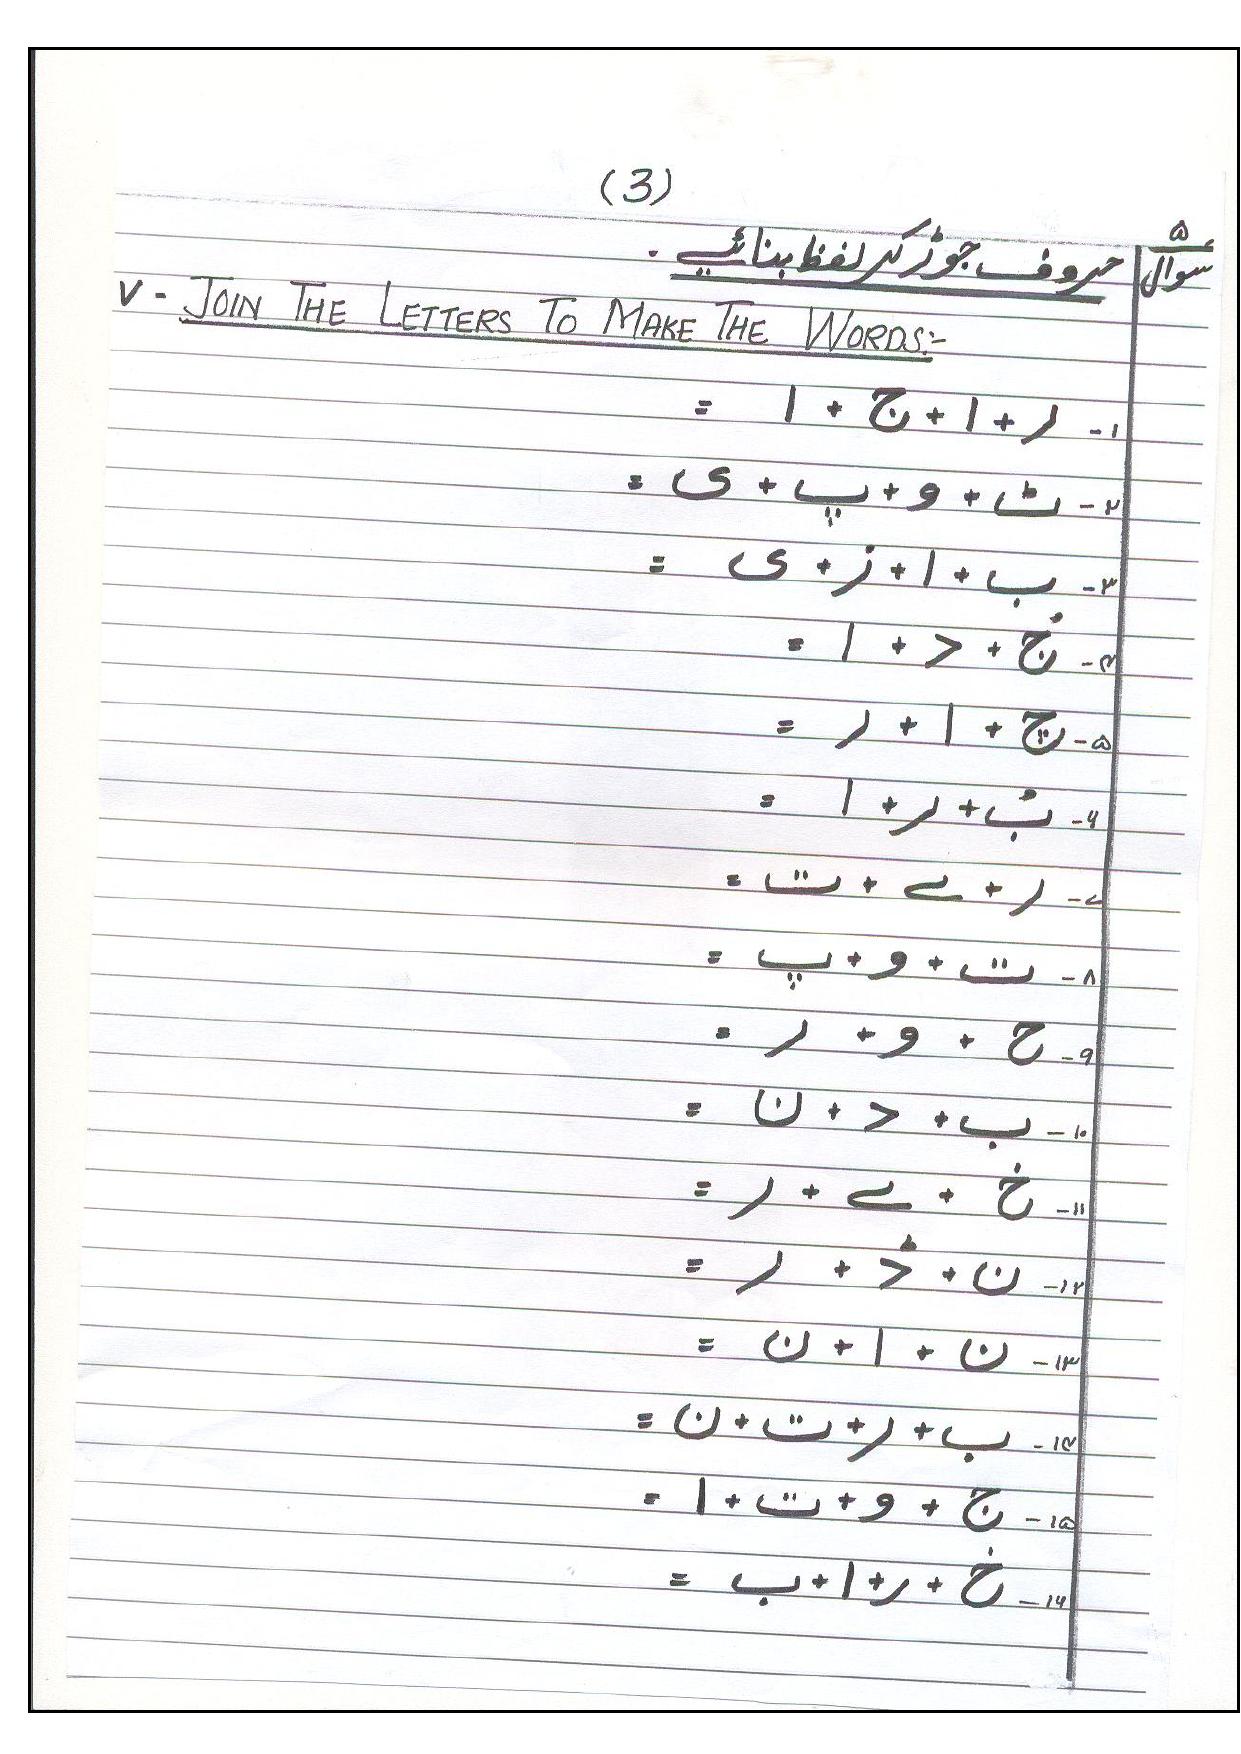 (3)
سوال ۵ حروف جوڑ کر لفظ بنائیے ۔
V - JOIN THE LETTERS TO MAKE THE WORDS:-
۱- ر + ا + ج + ا =
۲- ٹ + و + پ + ی =
۳- ب + ا + ز + ی =
۴- جُ + د + ا =
۵- چ + ا + ر =
۶- بُ + ر + ا =
۷- ر + ے + ت =
۸- ت + و + پ =
۹- ح + و + ر =
۱۰- ب + د + ن =
۱۱- خ + ے + ر =
۱۲- ن + ڈ + ر =
۱۳- ن + ا + ن =
۱۴- ب + ر + ت + ن =
۱۵- ج + و + ت + ا =
۱۶- خ + ر + ا + ب =